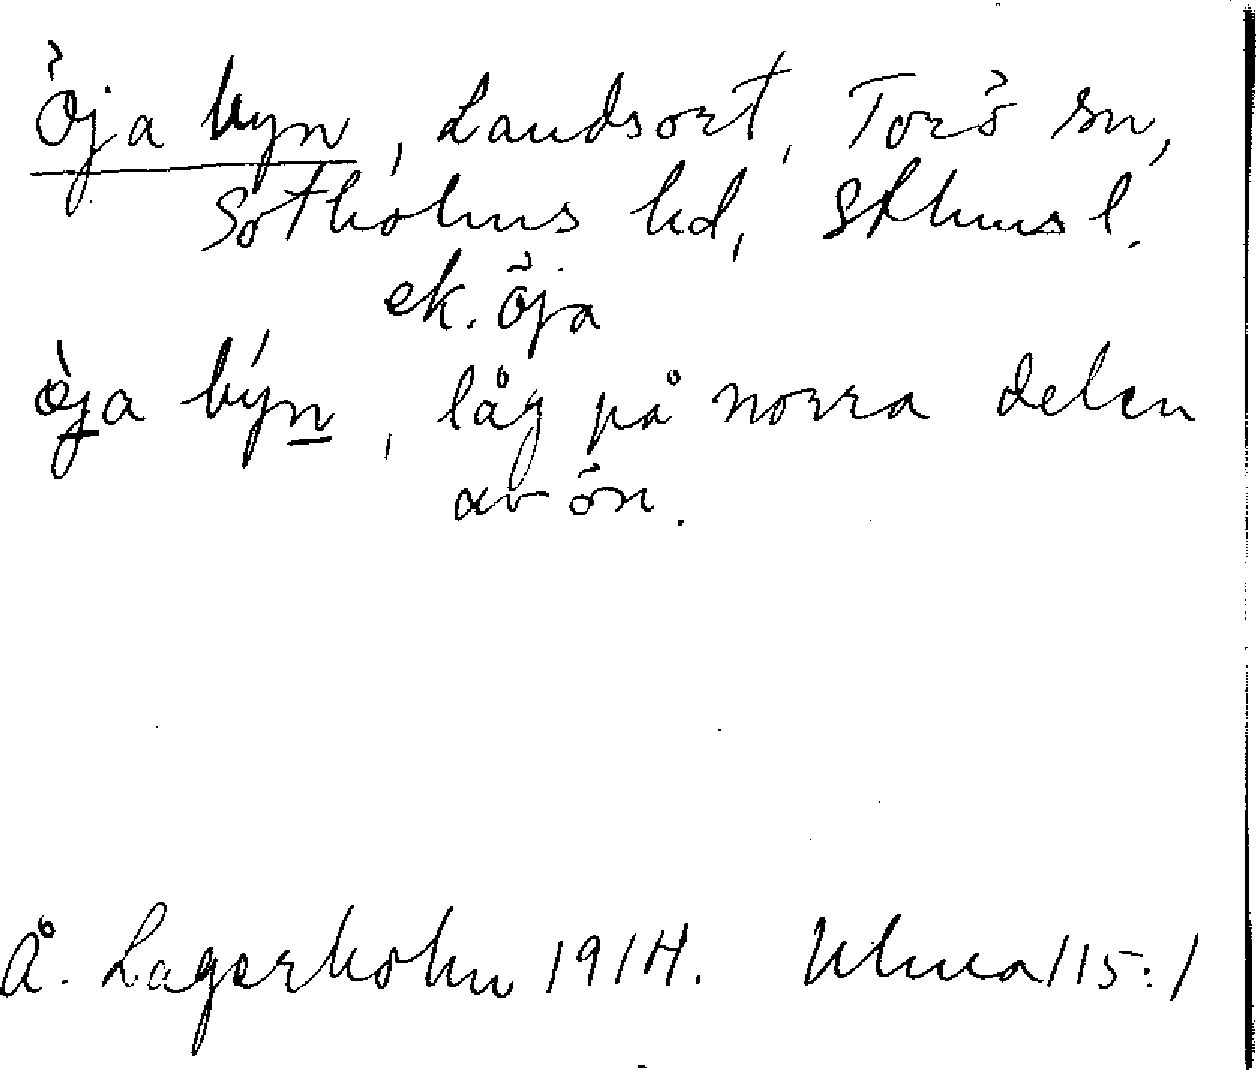 Öja byn, Landsort, Torö sn,
Sotholms hd, Sthms l.
ek. Öja
ö̀ja býn, låg på norra delen
av ön.
Å. Lagerholm 1914. Ulma 115:1